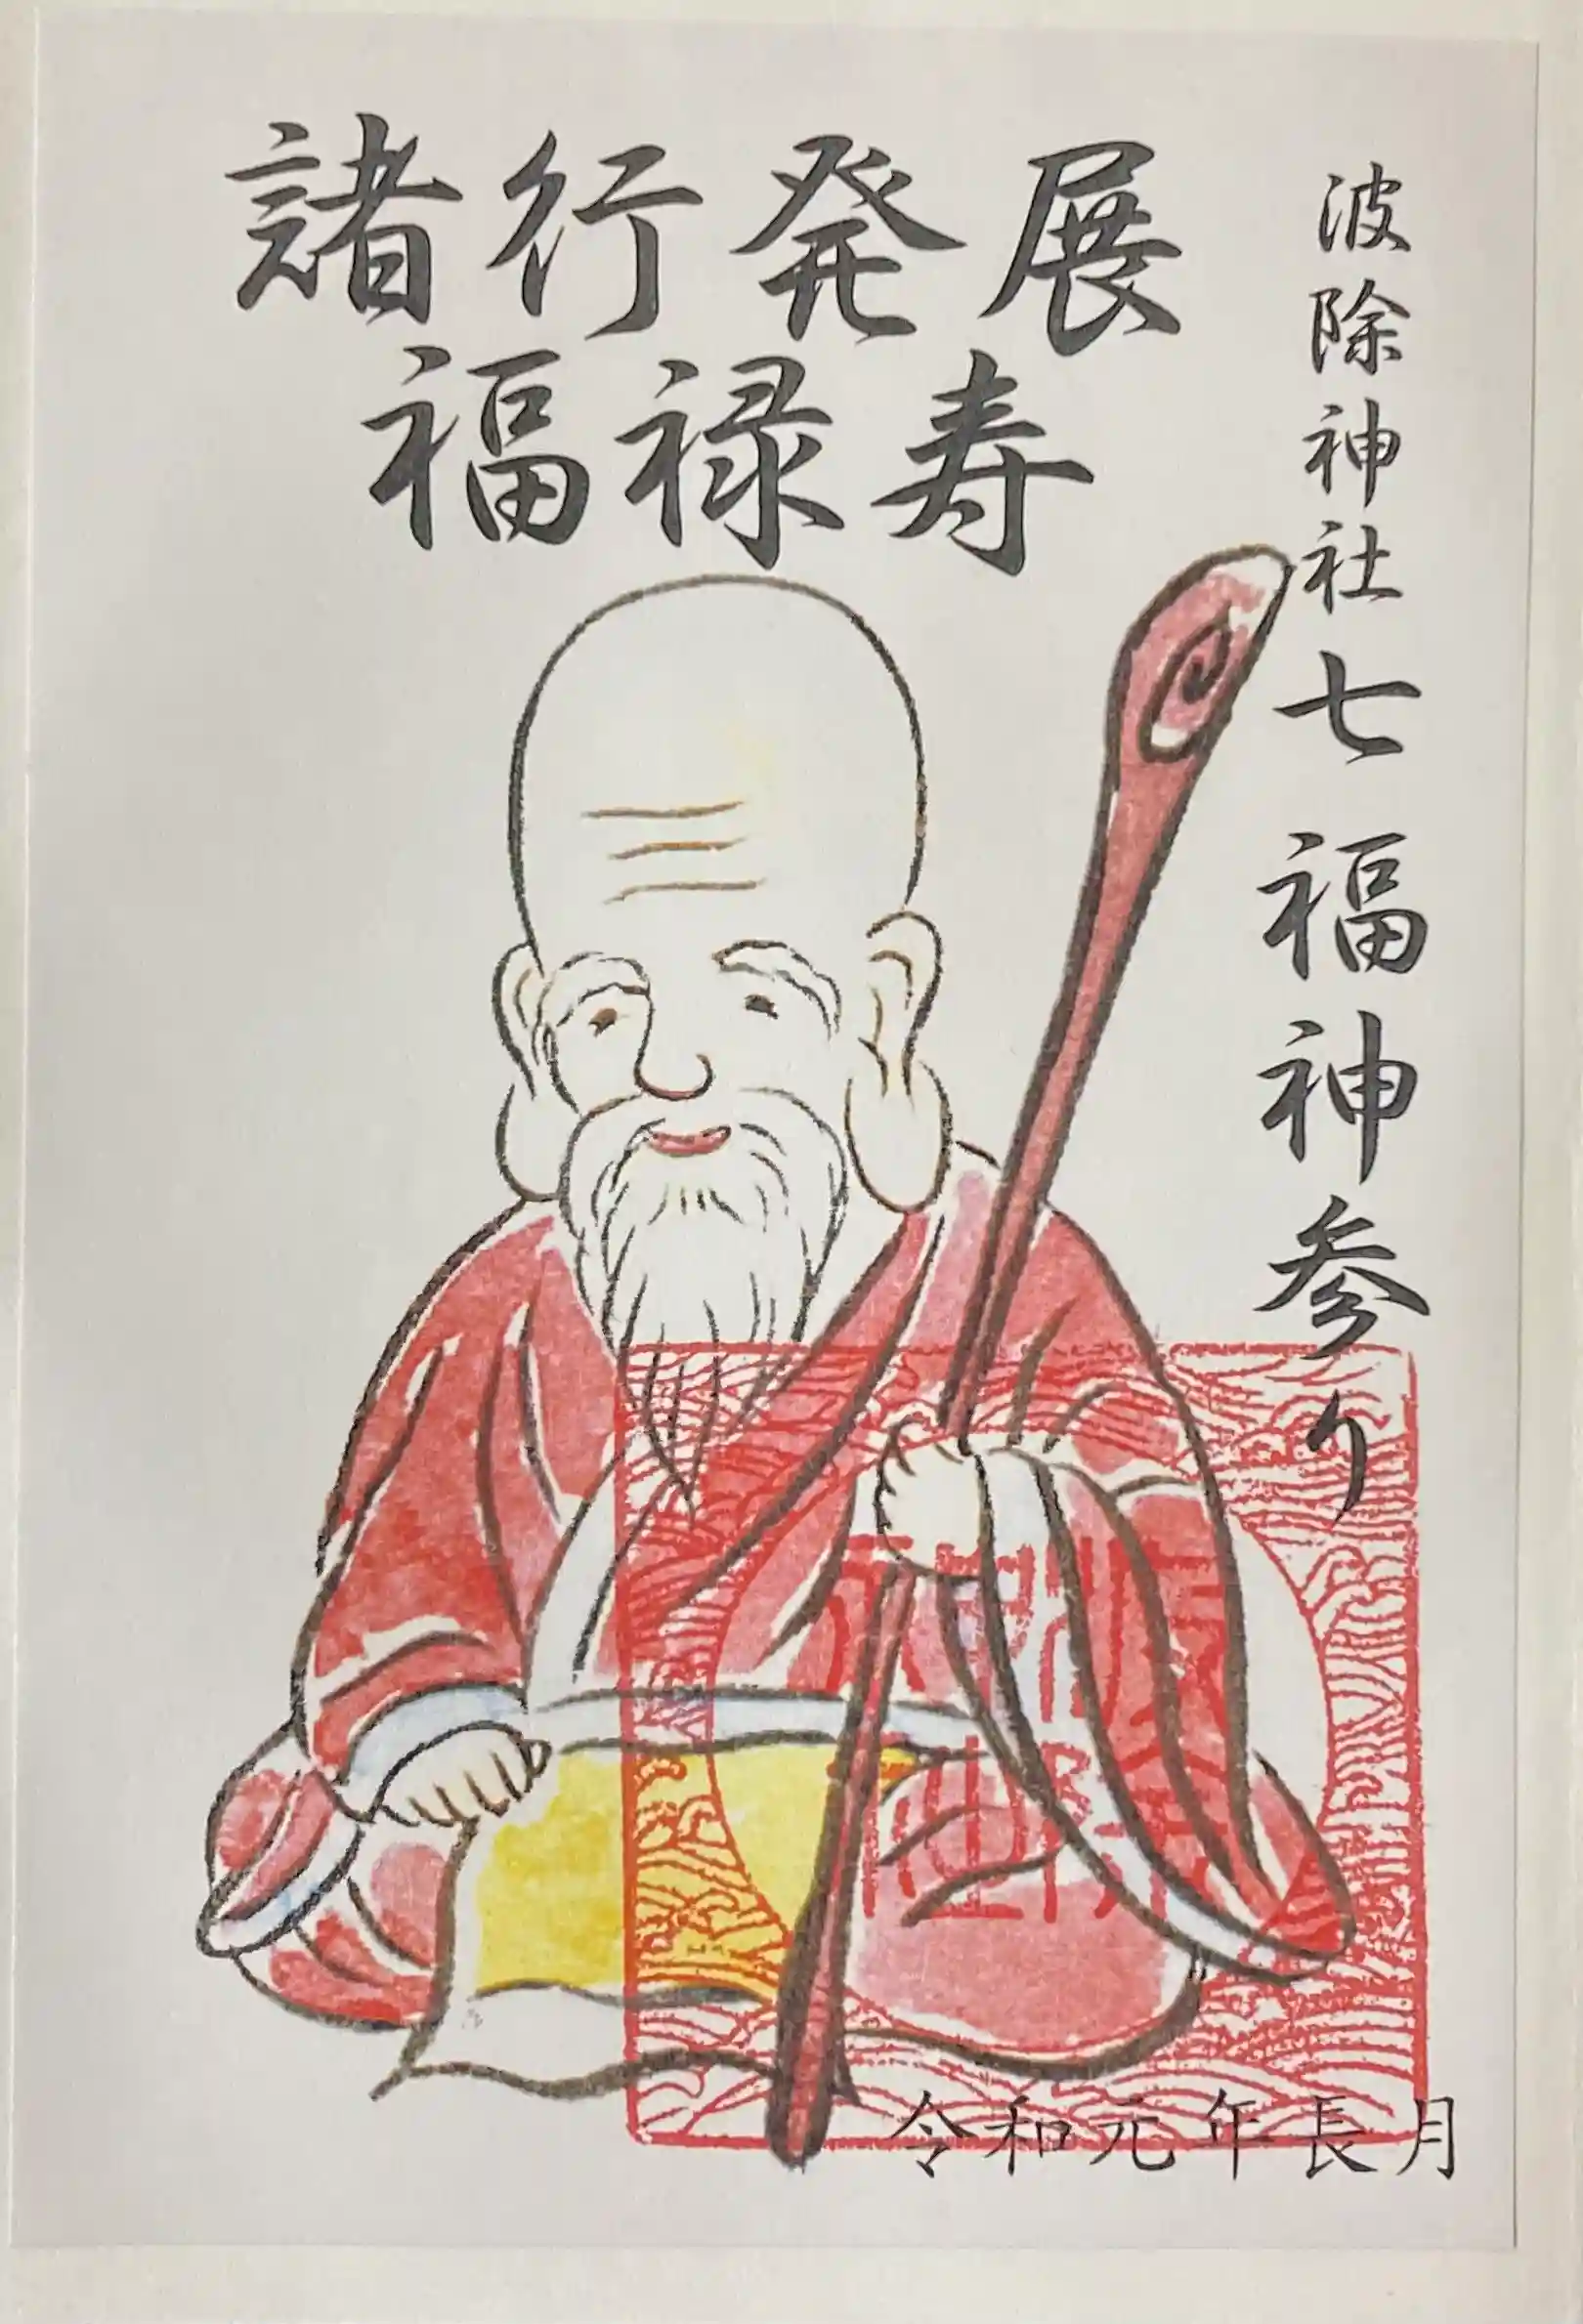 諸行発展
福禄寿
波除神社七福神参り
波除神社
令和元年長月